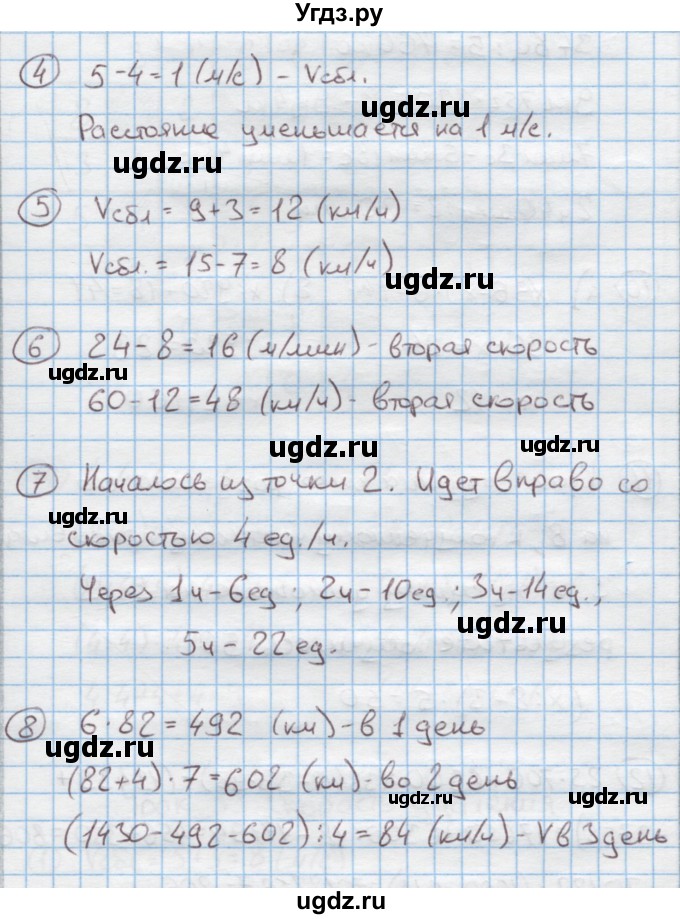 Угдз.ру
④ 5-4=1 (м/с) - Vсбл.
ugdz.ru
Расстояние уменьшается на 1 м/с.
ugdz.ru
⑤ Vсбл = 9+3=12 (км/ч)
Vсбл. = 15-7=8 (км/ч)
ugdz.ru
⑥ 24-8=16 (м/мин) - вторая скорость
ugdz.ru
60-12=48 (км/ч) - вторая скорость
ugdz.ru
ugdz.ru
⑦ Началось из точки 2. Идет вправо со
ugdz.ru
скоростью 4 ед./ч.
Через 1ч-6ед ; 2ч-10ед.; 3ч-14ед.;
ugdz.ru
5ч-22ед.
⑧ 6·82=492 (км) - в 1 день
ugdz.ru
(82+4)·7=602 (км) - во 2 день
ugdz.ru
ugdz.ru
(1430-492-602):4=84 (км/ч) - V в 3 день
ugdz.ru